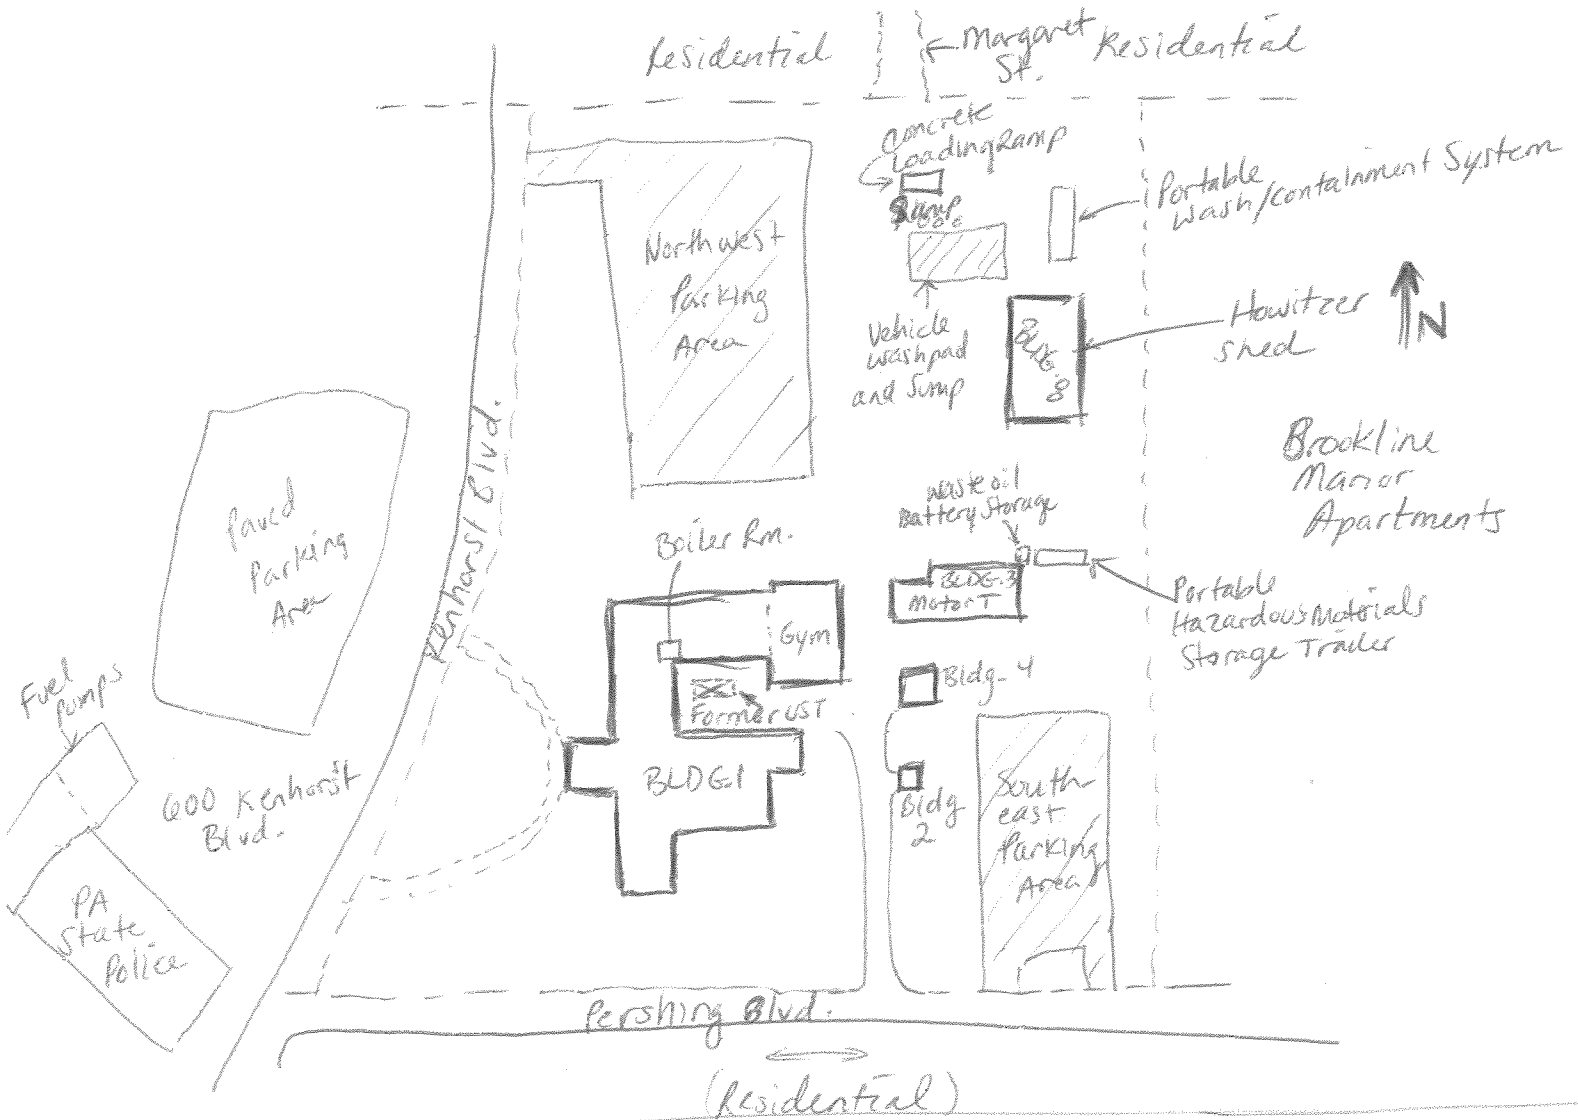 Residential
Margaret
St.
Residential
Concrete
Loading Ramp
Ramp
Portable
Wash/containment System
Northwest
Parking
Area
Vehicle
Washpad
and Sump
BLDG. 8
Howitzer
Shed
N
Brookline
Manor
Apartments
Kenhorst Blvd.
Paved
Parking
Area
Waste oil
Battery Storage
Boiler Rm.
BLDG. 3
Motor T
Gym
Portable
Hazardous Materials
Storage Trailer
Fuel
Pumps
Former UST
Bldg. 4
BLDG. 1
600 Kenhorst
Blvd.
Bldg
2
South
east
Parking
Area
PA
State
Police
Pershing Blvd.
(Residential)